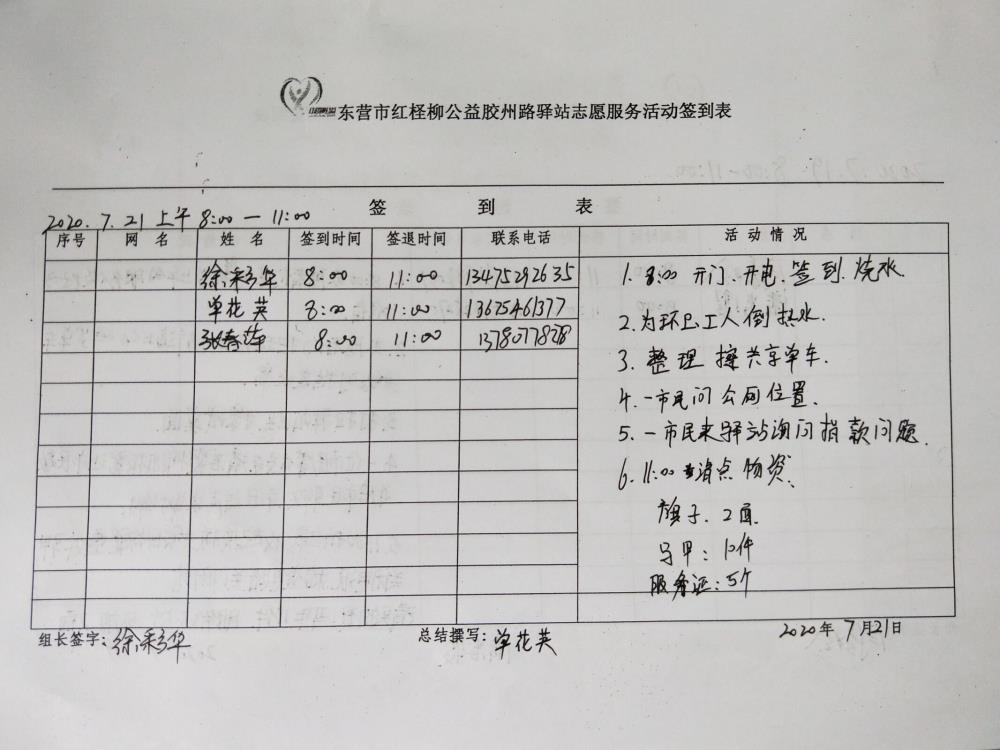 东营市红柽柳公益胶州路驿站志愿服务活动签到表
签 到 表
2020.7.21 上午 8:00 — 11:00
序号 网 名 姓 名 签到时间 签退时间 联系电话 活 动 情 况
徐彩华 8:00 11:00 13475292635
单花英 8:00 11:00 13675461377
张春萍 8:00 11:00 13780778278
1. 8:00 开门.开电.签到.烧水.
2.为环卫工人倒热水.
3. 整理 擦共享单车.
4.一市民问公厕位置.
5.一市民来驿站询问捐款问题.
6.11:00 清点物资.
旗子.2面
马甲:10件
服务证:5个
组长签字:徐彩华 总结撰写:单花英 2020年7月21日